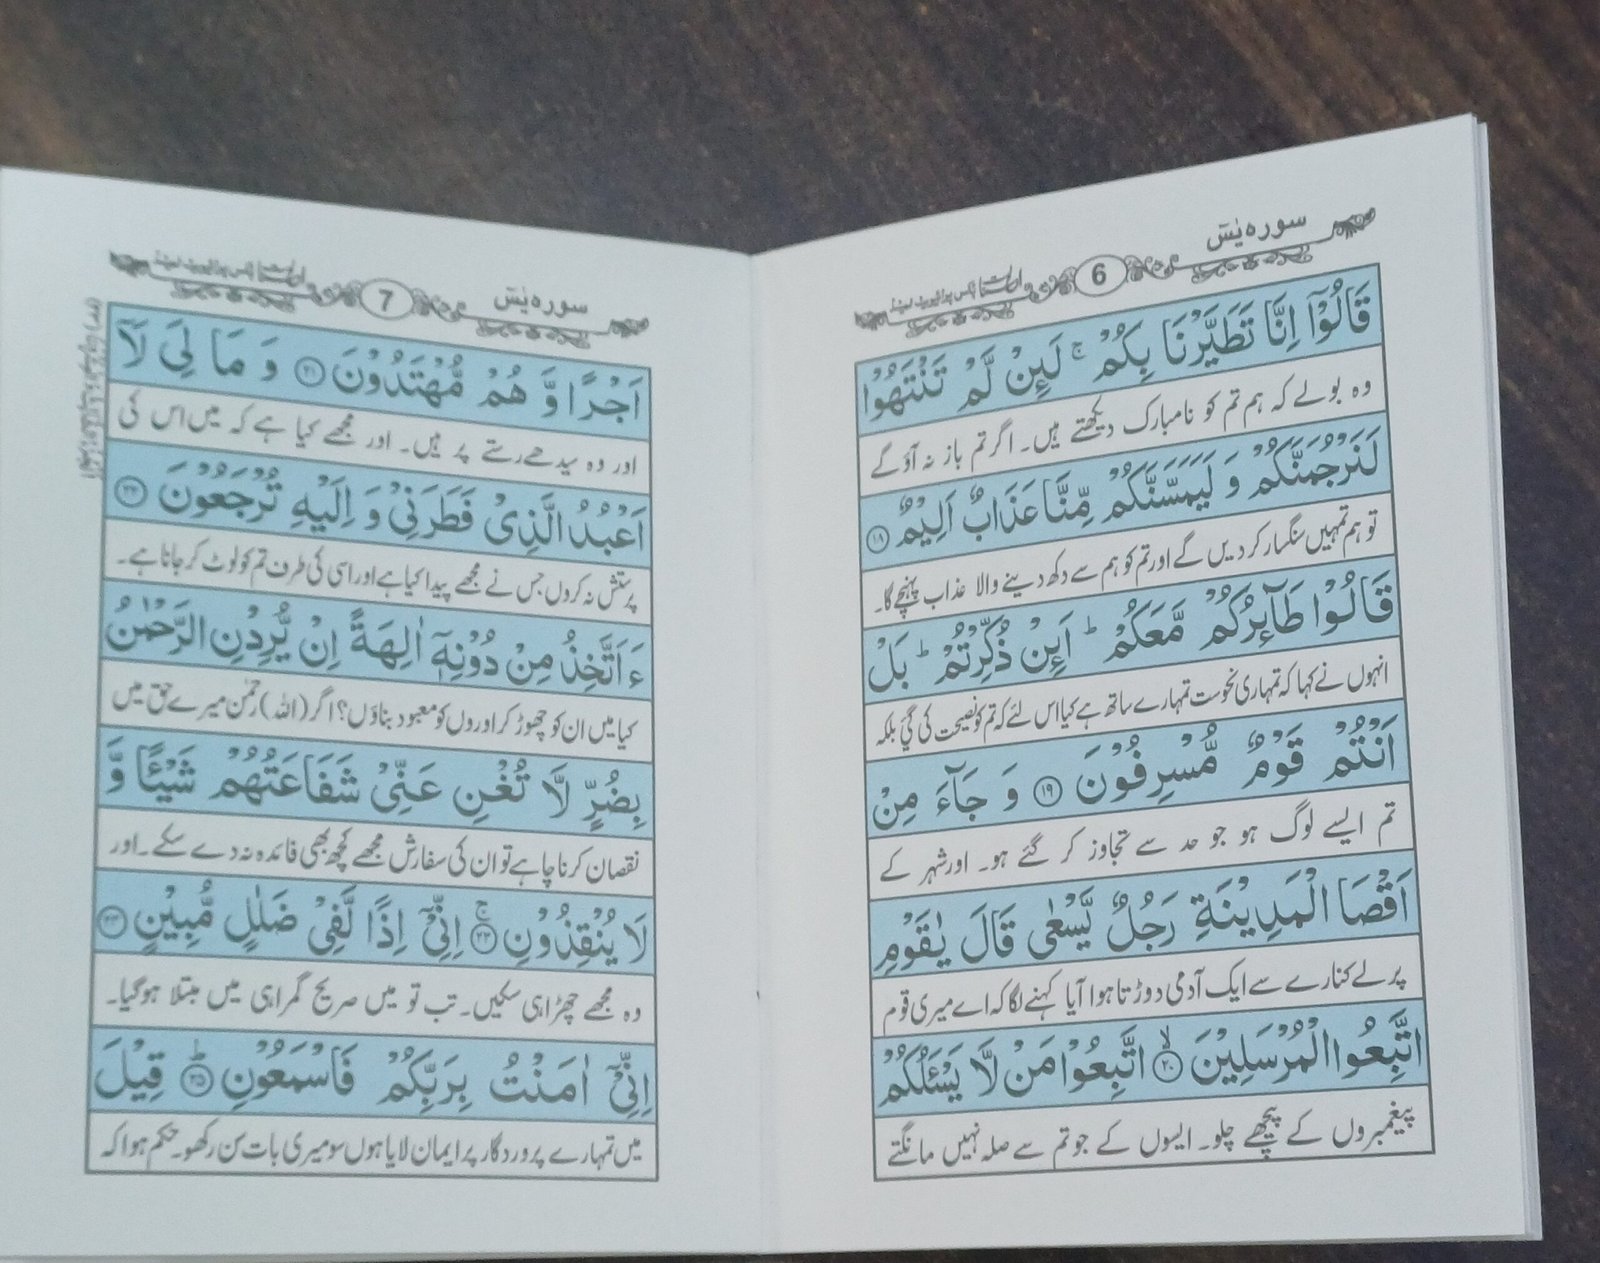 سورہ یٰسٓ
6
قَالُوْۤا اِنَّا تَطَیَّرْنَا بِکُمْ ۚ لَئِنْ لَّمْ تَنْتَهُوْا
وہ بولے کہ ہم تم کو نامبارک دیکھتے ہیں۔ اگر تم باز نہ آؤ گے
لَنَرْجُمَنَّکُمْ وَ لَیَمَسَّنَّکُمْ مِّنَّا عَذَابٌ اَلِیْمٌ ۝۱۸
تو ہم تمہیں سنگسار کر دیں گے اور تم کو ہم سے دکھ دینے والا عذاب پہنچے گا۔
قَالُوْا طَآئِرُکُمْ مَّعَکُمْ ؕ اَئِنْ ذُکِّرْتُمْ ؕ بَلْ
انہوں نے کہا کہ تمہاری نحوست تمہارے ساتھ ہے کیا اس لئے کہ تم کو نصیحت کی گئی بلکہ
اَنْتُمْ قَوْمٌ مُّسْرِفُوْنَ ۝۱۹ وَ جَآءَ مِنْ
تم ایسے لوگ ہو جو حد سے تجاوز کر گئے ہو۔ اور شہر کے
اَقْصَا الْمَدِیْنَةِ رَجُلٌ یَّسْعٰی قَالَ یٰقَوْمِ
پرلے کنارے سے ایک آدمی دوڑتا ہوا آیا کہنے لگا کہ اے میری قوم
اتَّبِعُوا الْمُرْسَلِیْنَ ۙ۝۲۰ اتَّبِعُوْا مَنْ لَّا یَسْـَٔلُکُمْ
پیغمبروں کے پیچھے چلو۔ ایسوں کے جو تم سے صلہ نہیں مانگتے
سورہ یٰسٓ
7
اَجْرًا وَّ هُمْ مُّهْتَدُوْنَ ۝۲۱ وَ مَا لِیَ لَاۤ
اور وہ سیدھے رستے پر ہیں۔ اور مجھے کیا ہے کہ میں اس کی
اَعْبُدُ الَّذِیْ فَطَرَنِیْ وَ اِلَیْهِ تُرْجَعُوْنَ ۝۲۲
پرستش نہ کروں جس نے مجھے پیدا کیا ہے اور اسی کی طرف تم کو لوٹ کر جانا ہے۔
ءَاَتَّخِذُ مِنْ دُوْنِهٖۤ اٰلِهَةً اِنْ یُّرِدْنِ الرَّحْمٰنُ
کیا میں ان کو چھوڑ کر اوروں کو معبود بناؤں؟ اگر (اللہ) رحمٰن میرے حق میں
بِضُرٍّ لَّا تُغْنِ عَنِّیْ شَفَاعَتُهُمْ شَیْـًٔا وَّ
نقصان کرنا چاہے تو ان کی سفارش مجھے کچھ بھی فائدہ نہ دے سکے۔ اور
لَا یُنْقِذُوْنِ ۚ۝۲۳ اِنِّیْۤ اِذًا لَّفِیْ ضَلٰلٍ مُّبِیْنٍ ۝۲۴
وہ مجھے چھڑا ہی سکیں۔ تب تو میں صریح گمراہی میں مبتلا ہو گیا۔
اِنِّیْۤ اٰمَنْتُ بِرَبِّکُمْ فَاسْمَعُوْنِ ؕ۝۲۵ قِیْلَ
میں تمہارے پروردگار پر ایمان لایا ہوں سو میری بات سن رکھو۔ حکم ہوا کہ